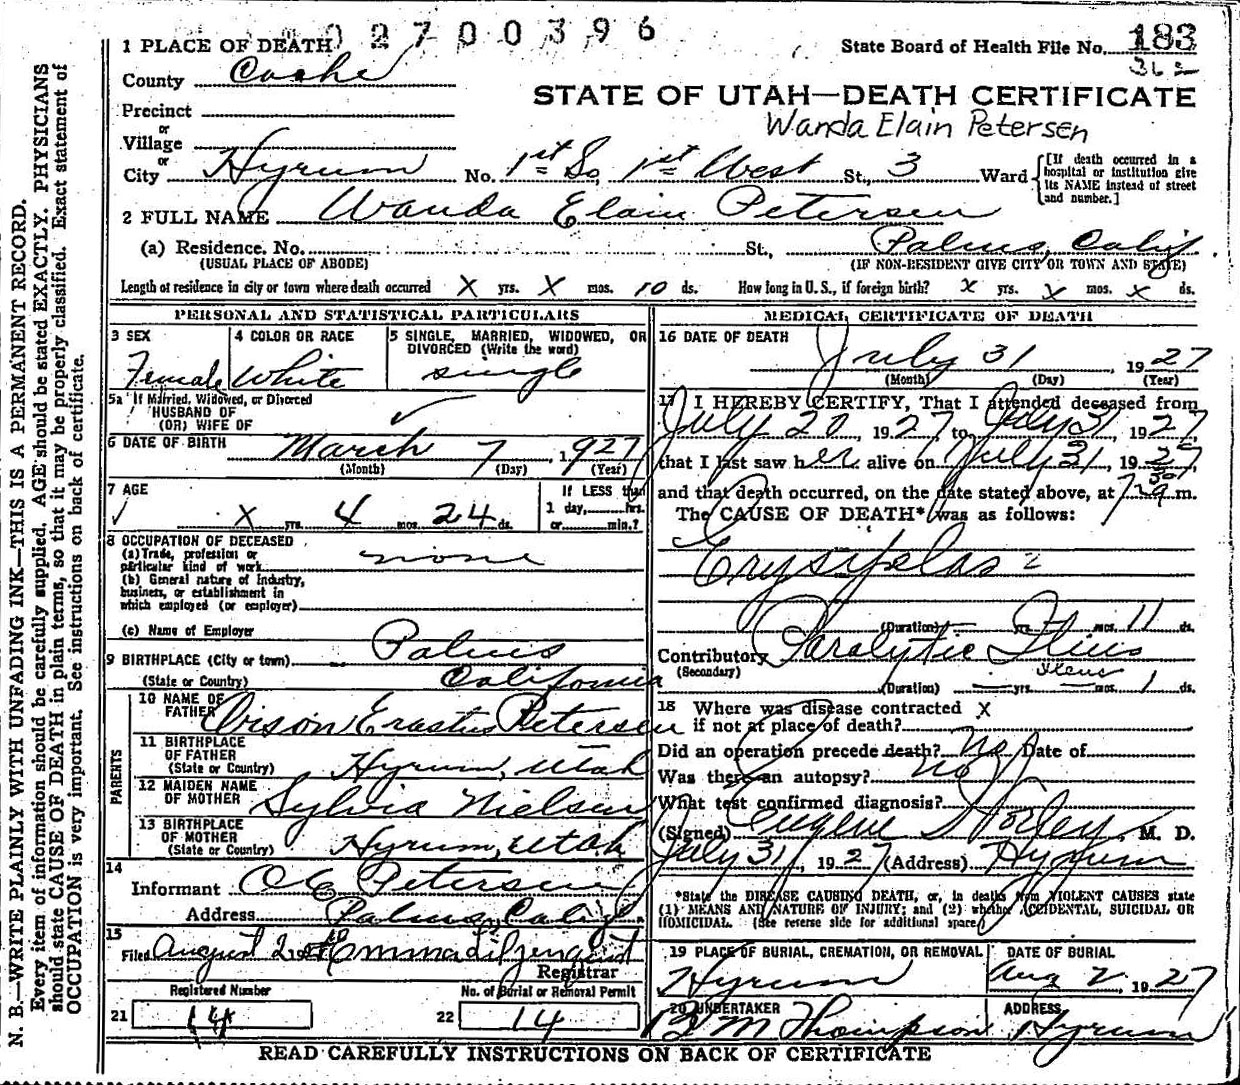 02700396
1 PLACE OF DEATH
State Board of Health File No. 183
362
County Cache
STATE OF UTAH—DEATH CERTIFICATE
Precinct
Wanda Elain Petersen
or
Village
or
City Hyrum No. 1st So, 1st West St., 3 Ward [If death occurred in a hospital or institution give its NAME instead of street and number.]
2 FULL NAME Wanda Elain Petersen
(a) Residence. No. St., Palms, Calif
(USUAL PLACE OF ABODE) (IF NON-RESIDENT GIVE CITY OR TOWN AND STATE)
Length of residence in city or town where death occurred X yrs. X mos. 10 ds. How long in U. S., if foreign birth? x yrs. x mos. x ds.
PERSONAL AND STATISTICAL PARTICULARS
3 SEX
Female
4 COLOR OR RACE
White
5 SINGLE, MARRIED, WIDOWED, OR DIVORCED (Write the word)
single
5a If Married, Widowed, or Divorced
HUSBAND OF
(OR) WIFE OF
6 DATE OF BIRTH March 7, 1927
(Month) (Day) (Year)
7 AGE
x yrs. 4 mos. 24 ds.
If LESS than
1 day, hrs.
or min.?
8 OCCUPATION OF DECEASED
(a) Trade, profession or
particular kind of work none
(b) General nature of Industry,
business, or establishment in
which employed (or employer)
(c) Name of Employer
9 BIRTHPLACE (City or town) Palms
(State or Country) California
PARENTS
10 NAME OF
FATHER Orson Erastus Petersen
11 BIRTHPLACE
OF FATHER
(State or Country) Hyrum, Utah
12 MAIDEN NAME
OF MOTHER Sylvia Nielsen
13 BIRTHPLACE
OF MOTHER
(State or Country) Hyrum, Utah
14
Informant O E Petersen
Address Palms, Calif.
15
Filed August 2 Emma Liljenquist
Registrar
Registered Number
21 14
No. of Burial or Removal Permit
22 14
MEDICAL CERTIFICATE OF DEATH
16 DATE OF DEATH
July 31 1927
(Month) (Day) (Year)
17 I HEREBY CERTIFY, That I attended deceased from
July 20, 1927, to July 31, 1927,
that I last saw her alive on July 31, 1927
and that death occurred, on the date stated above, at 7 30 a m.
The CAUSE OF DEATH* was as follows:
Erysipelas
(Duration) yrs. mos. 11 ds.
Contributory Paralytic Ilius
(Secondary) Ileus
(Duration) yrs. mos. 1 ds.
18 Where was disease contracted X
if not at place of death?
Did an operation precede death? No Date of
Was there an autopsy? No
What test confirmed diagnosis?
(Signed) Eugene Worley, M. D.
July 31, 1927 (Address) Hyrum
*State the DISEASE CAUSING DEATH, or, in deaths from VIOLENT CAUSES state
(1) MEANS AND NATURE OF INJURY; and (2) whether ACCIDENTAL, SUICIDAL OR
HOMICIDAL. (See reverse side for additional space.)
19 PLACE OF BURIAL, CREMATION, OR REMOVAL
Hyrum
DATE OF BURIAL
Aug 2, 1927
20 UNDERTAKER
B M Thompson
ADDRESS
Hyrum
READ CAREFULLY INSTRUCTIONS ON BACK OF CERTIFICATE
N. B.—WRITE PLAINLY WITH UNFADING INK—THIS IS A PERMANENT RECORD.
Every item of information should be carefully supplied. AGE should be stated EXACTLY. PHYSICIANS
should state CAUSE OF DEATH in plain terms, so that it may be properly classified. Exact statement of
OCCUPATION is very important. See instructions on back of certificate.